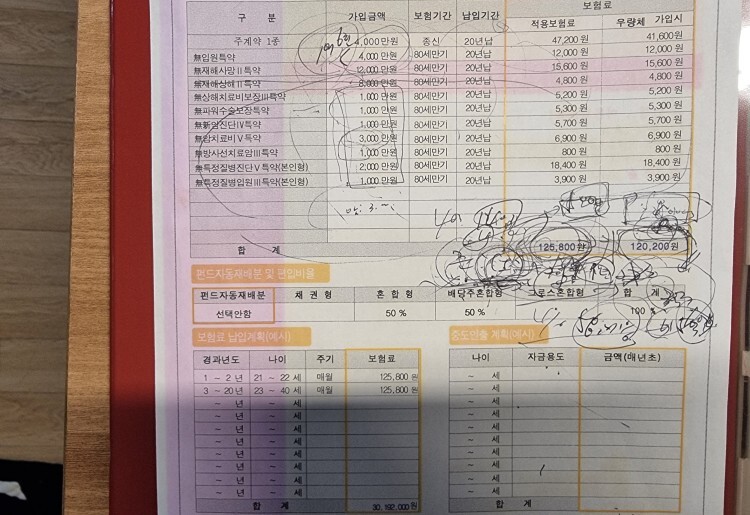 구 분 가입금액 보험기간 납입기간 보험료
적용보험료 우량체 가입시
주계약 1종 4,000만원 종신 20년납 47,200원 41,600원
無입원특약 4,000만원 80세만기 20년납 12,000원 12,000원
無재해사망Ⅱ특약 12,000만원 80세만기 20년납 15,600원 15,600원
無재해상해Ⅱ특약 8,000만원 80세만기 20년납 4,800원 4,800원
無상해치료비보장Ⅲ특약 1,000만원 80세만기 20년납 5,200원 5,200원
無파워수술보장특약 1,000만원 80세만기 20년납 5,300원 5,300원
無新암진단Ⅳ특약 1,000만원 80세만기 20년납 5,700원 5,700원
無암치료비Ⅴ특약 3,000만원 80세만기 20년납 6,900원 6,900원
無방사선치료암Ⅲ특약 1,000만원 80세만기 20년납 800원 800원
無특정질병진단Ⅴ특약(본인형) 2,000만원 80세만기 20년납 18,400원 18,400원
無특정질병입원Ⅲ특약(본인형) 1,000만원 80세만기 20년납 3,900원 3,900원
합 계 125,800원 120,200원
펀드자동재배분 및 편입비율
펀드자동재배분 채 권 형 혼 합 형 배당주혼합형 그로스혼합형 합 계
선택안함 50 % 50 % 100 %
보험료 납입계획(예시) 중도인출 계획(예시)
경과년도 나이 주기 보험료 나이 자금용도 금액(매년초)
1 ~ 2 년 21 ~ 22 세 매월 125,800 원 ~ 세
3 ~ 20 년 23 ~ 40 세 매월 125,800 원 ~ 세
~ 년 ~ 세 ~ 세
~ 년 ~ 세 ~ 세
~ 년 ~ 세 ~ 세
~ 년 ~ 세 ~ 세
~ 년 ~ 세 ~ 세
~ 년 ~ 세 ~ 세
~ 년 ~ 세 ~ 세
~ 년 ~ 세 ~ 세
합 계 30,192,000 원 합 계